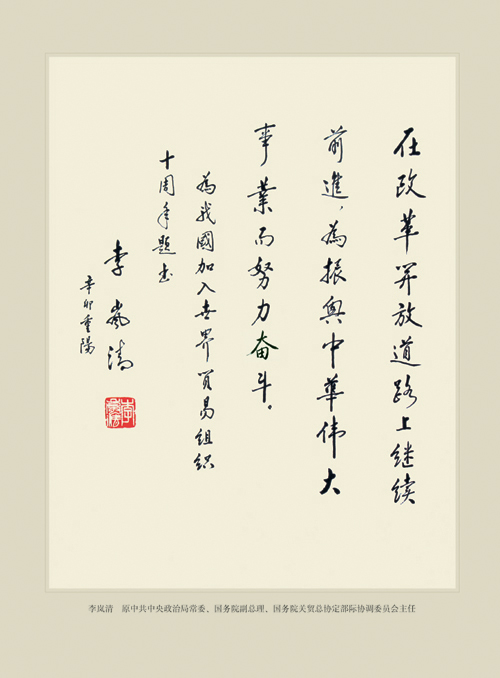 在改革开放道路上继续
前進，為振興中華偉大
事業而努力奋斗。
為我國加入世界貿易組織
十周年题書
李嵐清
辛卯重陽
李嵐清
李岚清　原中共中央政治局常委、国务院副总理、国务院关贸总协定部际协调委员会主任